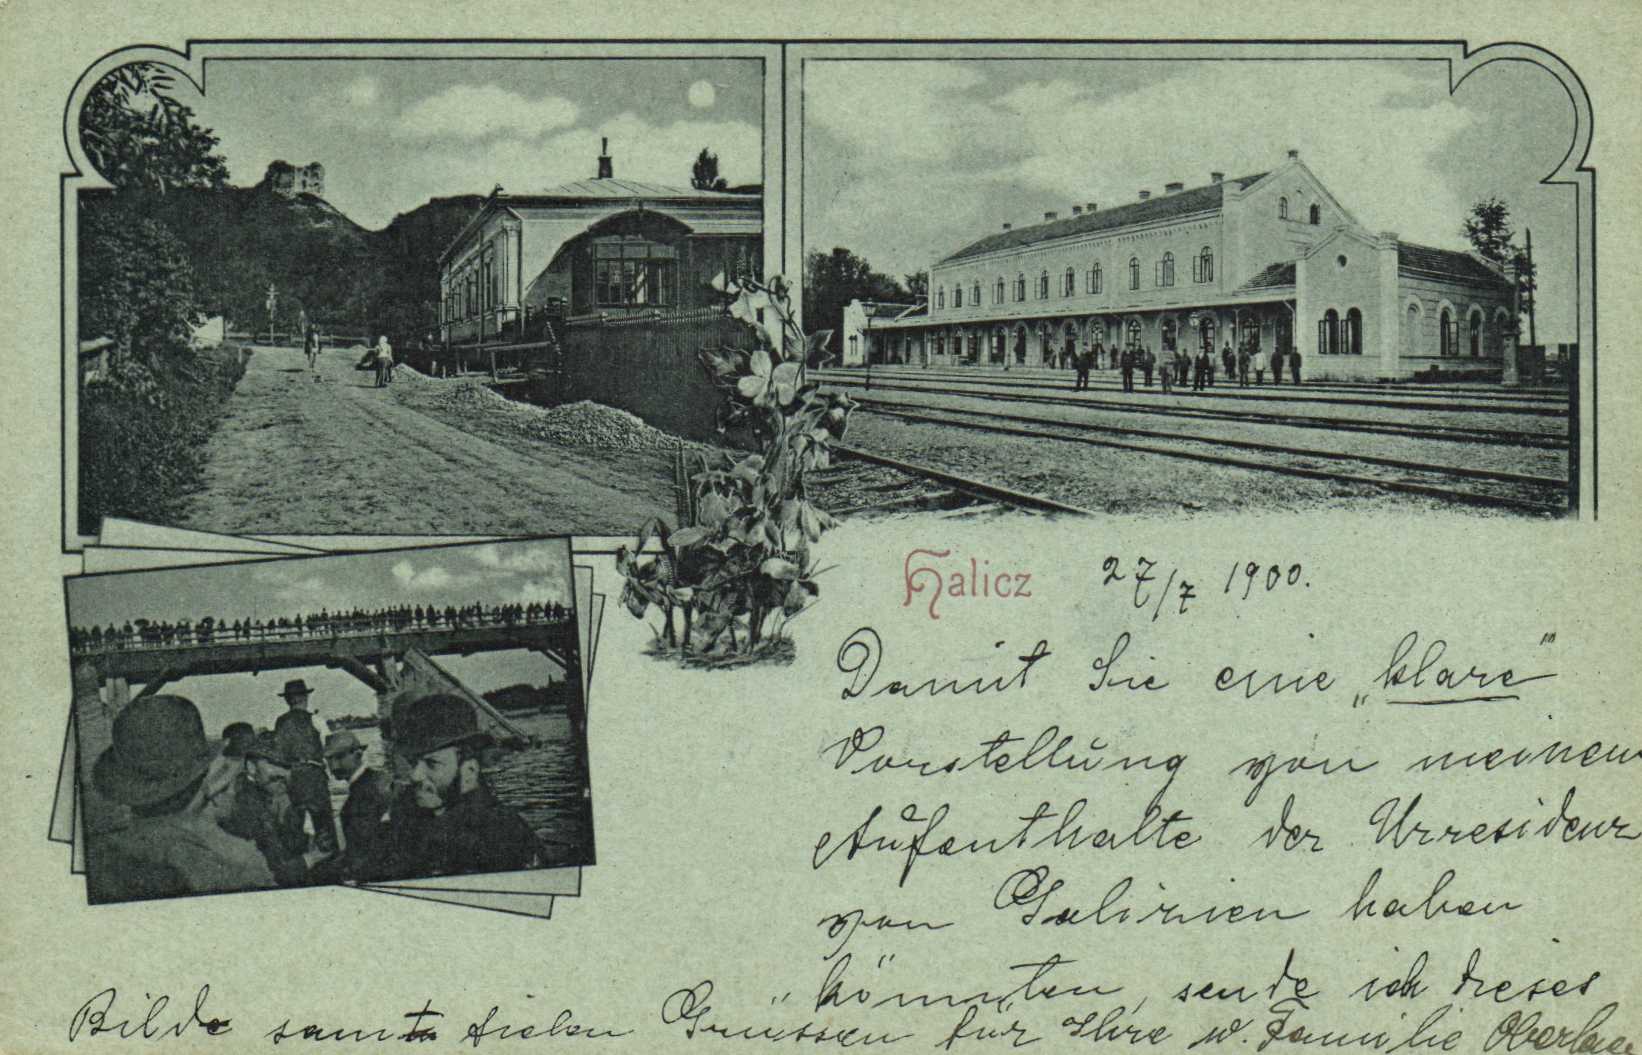 Halicz 27/7 1900.
Damit Sie eine „klare"
Vorstellung von meinem
Aufenthalte der Urresidenz
von Galizien haben
könnten, sende ich dieses
Bilde samt vielen Grüssen für Ihre w. Familie